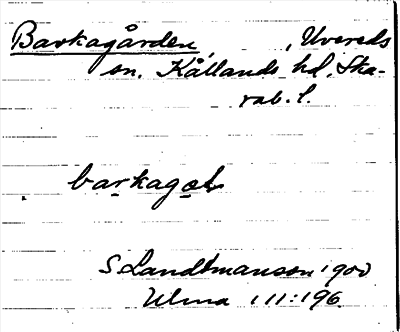 Barkagården, Uvereds
sn. Kållands hd, Ska-
rab. l.
barkagɑḷ
S Landtmanson 1900
Ulma 111:196